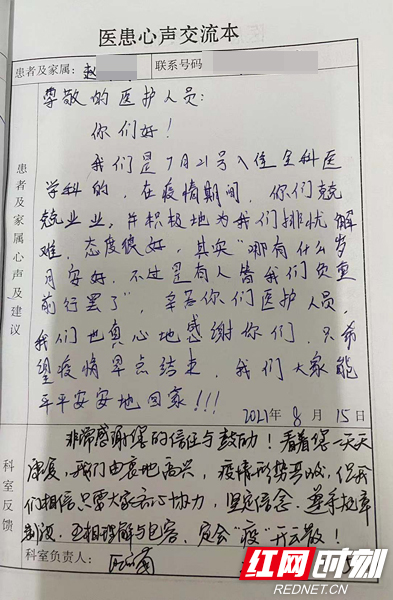 医患心声交流本
患者及家属: 赵
联系号码
患者及家属心声及建议
尊敬的医护人员:
你们好!
我们是7月21号入住全科医
学科的,在疫情期间,你们兢
兢业业,并积极地为我们排忧解
难,态度很好,其实“哪有什么岁
月安好,不过是有人替我们负重
前行罢了”,辛苦你们医护人员,
我们也真心地感谢你们,只希
望疫情早点结束,我们大家能
平平安安地回家!!!
2021年 8月 15日
科室反馈
非常感谢您的信任与鼓励!看着您一天天
康复,我们由衷地高兴,疫情形势严峻,但我
们相信只要大家齐心协力,坚定信念,遵守规章
制度,互相理解与包容,定会“疫”开云散!
科室负责人:
红网时刻
REDNET.CN